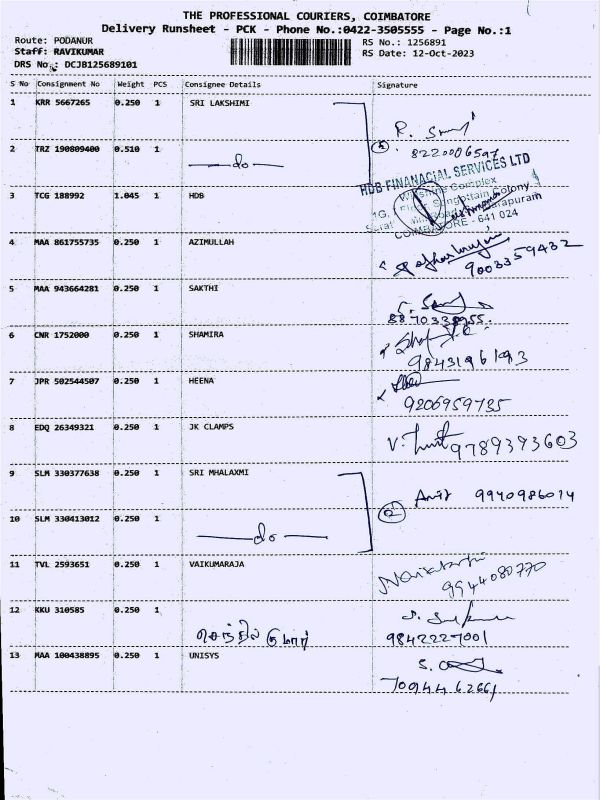 THE PROFESSIONAL COURIERS, COIMBATORE
Delivery Runsheet - PCK - Phone No.:0422-3505555 - Page No.:1
Route: PODANUR RS No.: 1256891
Staff: RAVIKUMAR RS Date: 12-Oct-2023
DRS No.: DCJB125689101
S No Consignment No Weight PCS Consignee Details Signature
1 KRR 5667265 0.250 1 SRI LAKSHIMI
2 TRZ 190809400 0.510 1 do 2 8220006597
3 TCG 188992 1.045 1 HDB HDB FINANACIAL SERVICES LTD
Complex
Colony
COIMBATORE - 641 024
4 MAA 861755735 0.250 1 AZIMULLAH 9003359432
5 MAA 943664281 0.250 1 SAKTHI
6 CNR 1752000 0.250 1 SHAMIRA
7 JPR 502544507 0.250 1 HEENA 9206959735
8 EDQ 26349321 0.250 1 JK CLAMPS 9789393603
9 SLM 330377638 0.250 1 SRI MHALAXMI 9940986014
10 SLM 330413012 0.250 1 do 2
11 TVL 2593651 0.250 1 VAIKUMARAJA 9944080770
12 KKU 310585 0.250 1 செந்தில் குமார் 9842227001
13 MAA 100438895 0.250 1 UNISYS 7094462661